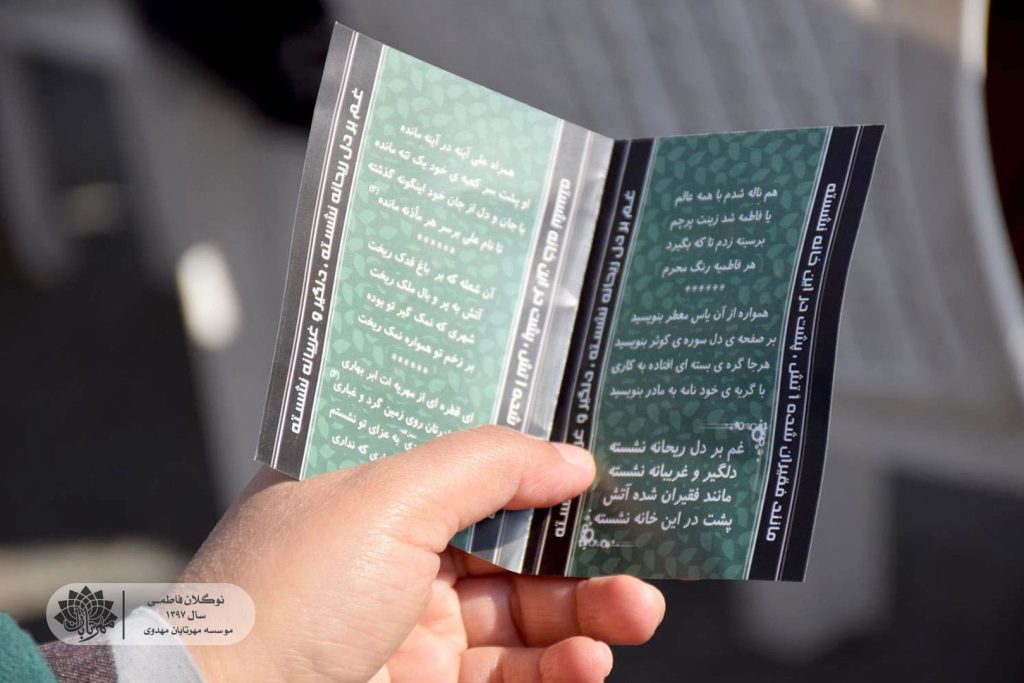 هم ناله شدم با همه عالم
با فاطمه شد زینت پرچم
بر سینه زدم تا که بگیرد
هر فاطمیه رنگ محرم
******
همواره از آن یاس معطر بنویسید
بر صفحه ی دل سوره ی کوثر بنویسید
هرجا گره ی بسته ای افتاده به کاری
با گریه ی خود نامه به مادر بنویسید
غم بر دل ریحانه نشسته
دلگیر و غریبانه نشسته
مانند فقیران شده آتش
پشت در این خانه نشسته
غم بر دل ریحانه نشسته ، دلگیر و
مانند فقیران شده آتش ، پشت در این خانه نشسته
همراه علی آینه در آینه مانده
او پشت سر کعبه ی خود یک تنه مانده
با جان و دل از جان خود اینگونه گذشته
تا نام علی بر سر هر مأذنه مانده
(۲)
******
آن شعله که بر باغ فدک ریخت
آتش به پر و بال ملک ریخت
شهری که نمک گیر تو بوده
بر زخم تو همواره نمک ریخت
******
ای قطره ای از مهریه ات ابر بهاری
روی زمین گرد و غباری
به عزای تو نشستم
که نداری
غم بر دل ریحانه نشسته ، دلگیر و غریبانه نشسته
شده آتش ، پشت در این خانه نشسته
نوگلان فاطمی
سال ۱۳۹۷
موسسه مهرتابان مهدوی
مهرتابان